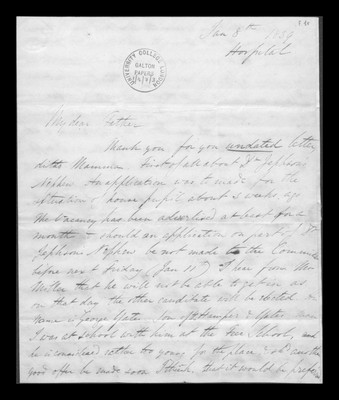 Jan 8th 1839
Hospital
UNIVERSITY COLLEGE LONDON
GALTON PAPERS
My dear Father
Thank you for your undated letter
ditto Mamma. First of all about Dr Jephson's
Nephew. An application was to made for the
situation of house pupil about 3 weeks ago
the Vacancy has been advertised at least for a
month – should an application on part of Dr
Jephson's Nephew be not made to the Committee
before next Friday (Jan 10th) I hear from
that he will not be able to get in as
on that day the other candidate will be elected
name is George Yates. Son of
I was at School with him at the Free School, and
he is considered rather too young for the place & if any other
good offer be made soon I think that it would be prefer